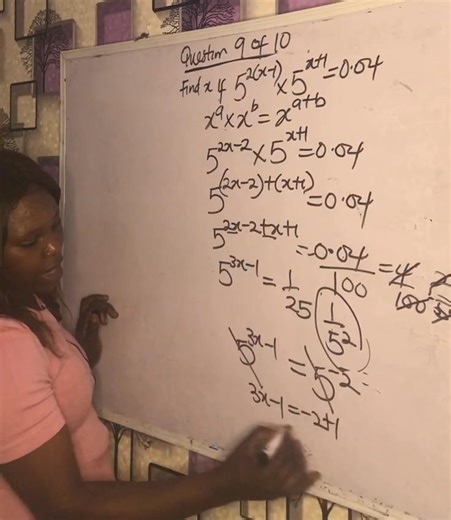 Question 9 of 10
Find x if 5^{2(x-1)} × 5^{x+1} = 0.04
x^a × x^b = x^{a+b}
5^{2x-2} × 5^{x+1} = 0.04
5^{(2x-2)+(x+1)} = 0.04
5^{2x-2+x+1} = 0.04/100 = 4/100
5^{3x-1} = 1/25
1/5^2
5^{3x-1} = 5^{-2}
3x-1 = -2+1